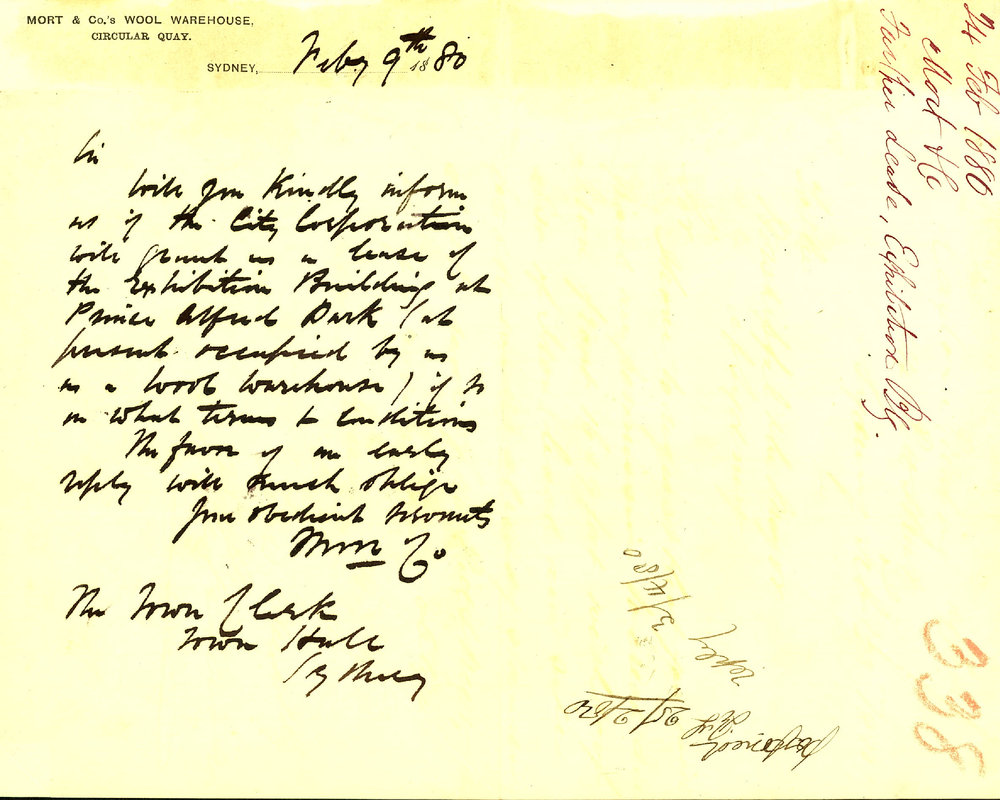 MORT & Co.'s WOOL WAREHOUSE,
CIRCULAR QUAY.
SYDNEY, Feby 9th 1880
Sir
Will you Kindly inform
us if the City Corporation
will grant us a lease of
the Exhibition Building at
Prince Alfred Park (at
present occupied by us
as a Wool Warehouse) if so
on what terms & conditions
The favor of an early
reply will much oblige
Your obedient servants
Mort & Co
The Town Clerk
Town Hall
Sydney
24 Feb 1880
Mort & Co
Further Lease, Exhibition Bg.
338
reply 3/4/80
Postponed
25/2/80